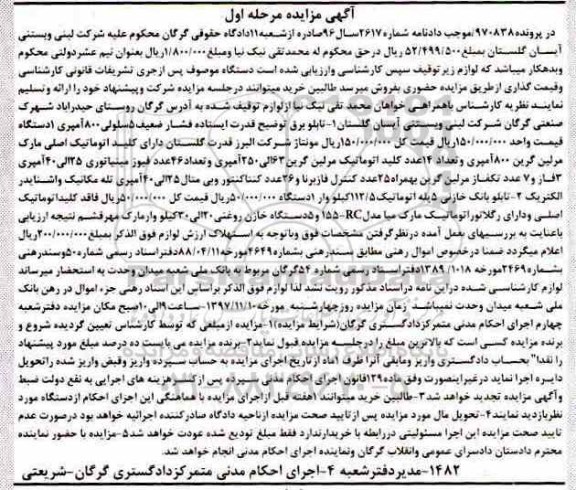 آگهی مزایده مرحله اول
در پرونده۹۷۰۸۳۸/موجب دادنامه شماره۲۶۱۷سال۹۶صادره ازشعبه۱۱دادگاه حقوقی گرگان محکوم علیه شرکت لبنی وپستنی
آبسان گلستان بمبلغ۵۲/۴۹۹/۵۰۰ ریال درحق محکوم له محمدتقی نیک نیا ومبلغ۱/۸۰۰/۰۰۰ریال بعنوان نیم عشردولتی محکوم
وبدهکار میباشد که لوازم زیرتوقیف سپس کارشناسی وارزیابی شده است دستگاه موصوف پس ازجری تشریفات قانونی کارشناسی
وقیمت گذاری ازطریق مزایده حضوری بفروش میرسد طالبین خرید میتوانند درجلسه مزایده شرکت وپیشنهاد خود را ارائه وتسلیم
نمایند نظریه کارشناس باهمراهی خواهان محمد تقی نیک نیا ازلوازم توقیف شده به آدرس گرگان روستای حیدراباد شهرک
صنعتی گرگان شرکت لبنی وپستنی آبسان گلستان۱-تابلو برق توضیح قدرت ایستاده فشار ضعیف۵سلولی۸۰۰آمپری ۱دستگاه
قیمت واحد ۱۵۰/۰۰۰/۰۰۰ریال قیمت کل ۱۵۰/۰۰۰/۰۰۰ریال مونتاژ شرکت البرز قدرت گلستان دارای کلید اتوماتیک اصلی مارک
مرلین گرین ۸۰۰آمپری و تعداد ۱۴عدد کلید اتوماتیک مرلین گرین۶۳الی۲۵۰آمپری وتعداد۴۶عدد فیوز مینیاتوری ۲۵الی۴۰آمپری
۳فاز و۷ عدد تکفاز مرلین گرین بهمراه۲۵عدد کنترل فازبرنا و۳۶عدد کنتاکتتور وبی متال۲۵الی۴۰آمپری تله مکانیک واشنایدر
الکتریک ۲-تابلو بانک خازنی ۵پله اتوماتیک۱۱۲/۵کیلو وار ۱دستگاه ۵۰/۰۰۰/۰۰۰ریال قیمت کل ۵۰/۰۰۰/۰۰۰ریال فاقد کلیداتوماتیک
اصلی ودارای رگلاتوراتوماتیک مارک میا مدلRC-۱۵۵ و۵دستگاه خازن روغنی۲۰الی۳۰کیلو وارمارک مهرقشم نتیجه ارزیابی
باعنایت به بررسیهای بعمل آمده درنظرگرفتن مشخصات فوق وباتوجه به استهلاک ارزش لوازم فوق الذکر بمبلغ۲۰۰/۰۰۰/۰۰۰ریال
اعلام میگردد ضمنا درخصوص اموال رهنی مطابق سندرهنی بشماره۴۶۴۹مورخه۸۸/۰۴/۱۱دفتراسناد رسمی شماره۵۰وسندرهنی
بشماره۲۴۶۹مورخه ۱۳۸۹/۱۰/۱۸دفتراسناد رسمی شماره ۵۴گرگان مربوط به بانک ملی شعبه میدان وحدت به استحضار میرساند
لوازم کارشناسی شده دراین نامه دراسناد مذکور رویت نشد لذا لوازم فوق الذکر براساس این اسناد رهنی جزء اموال در رهن بانک
ملی شعبه میدان وحدت نمیباشد زمان مزایده روزچهارشنبه مورخه۱۳۹۷/۱۱/۱۰-ساعت۹الی۱۰صبح مکان مزایده دفترشعبه
چهارم اجرای احکام مدنی متمرکزدادگستری گرگان(شرایط مزایده)۱-مزایده ازمبلغی که توسط کارشناس تعیین گردیده شروع و
برنده مزایده کسی است که بالاترین مبلغ را درجلسه مزایده قبول نماید۲-برنده مزایده می بایست ده درصد مبلغ مورد پیشنهاد
را نقدا" بحساب دادگستری واریز ومابقی آنرا ظرف ۱ماه ازتاریخ اجرای مزایده به حساب سپرده واریز وقبض واریز شده راتحویل
دایره اجرا نماید درغیراینصورت وفق ماده۱۲۹قانون اجرای احکام مدنی سپرده پس ازکسرهزینه های اجرایی به نفع دولت ضبط
وآگهی مزایده تجدید خواهد شد۳-طالبین خرید میتوانند ۱هفته قبل ازاجرای مزایده با هماهنگی این اجرای احکام ازدستگاه مورد
نظربازدید نمایند۴-تحویل مال مورد مزایده پس ازتایید صحت مزایده ازناحیه دادگاه صادرکننده اجرائیه خواهد بود درصورت عدم
تایید صحت مزایده این اجرا مسئولیتی دررابطه با خریدارندارد فقط مبلغ تودیع شده عودت خواهد شد۵-مزایده با حضور نماینده
محترم دادستان دادسرای عمومی وانقلاب گرگان ونماینده اجرای احکام مدنی انجام خواهد شد.
۱۴۸۲-مدیردفترشعبه ۴-اجرای احکام مدنی متمرکزدادگستری گرگان-شریعتی